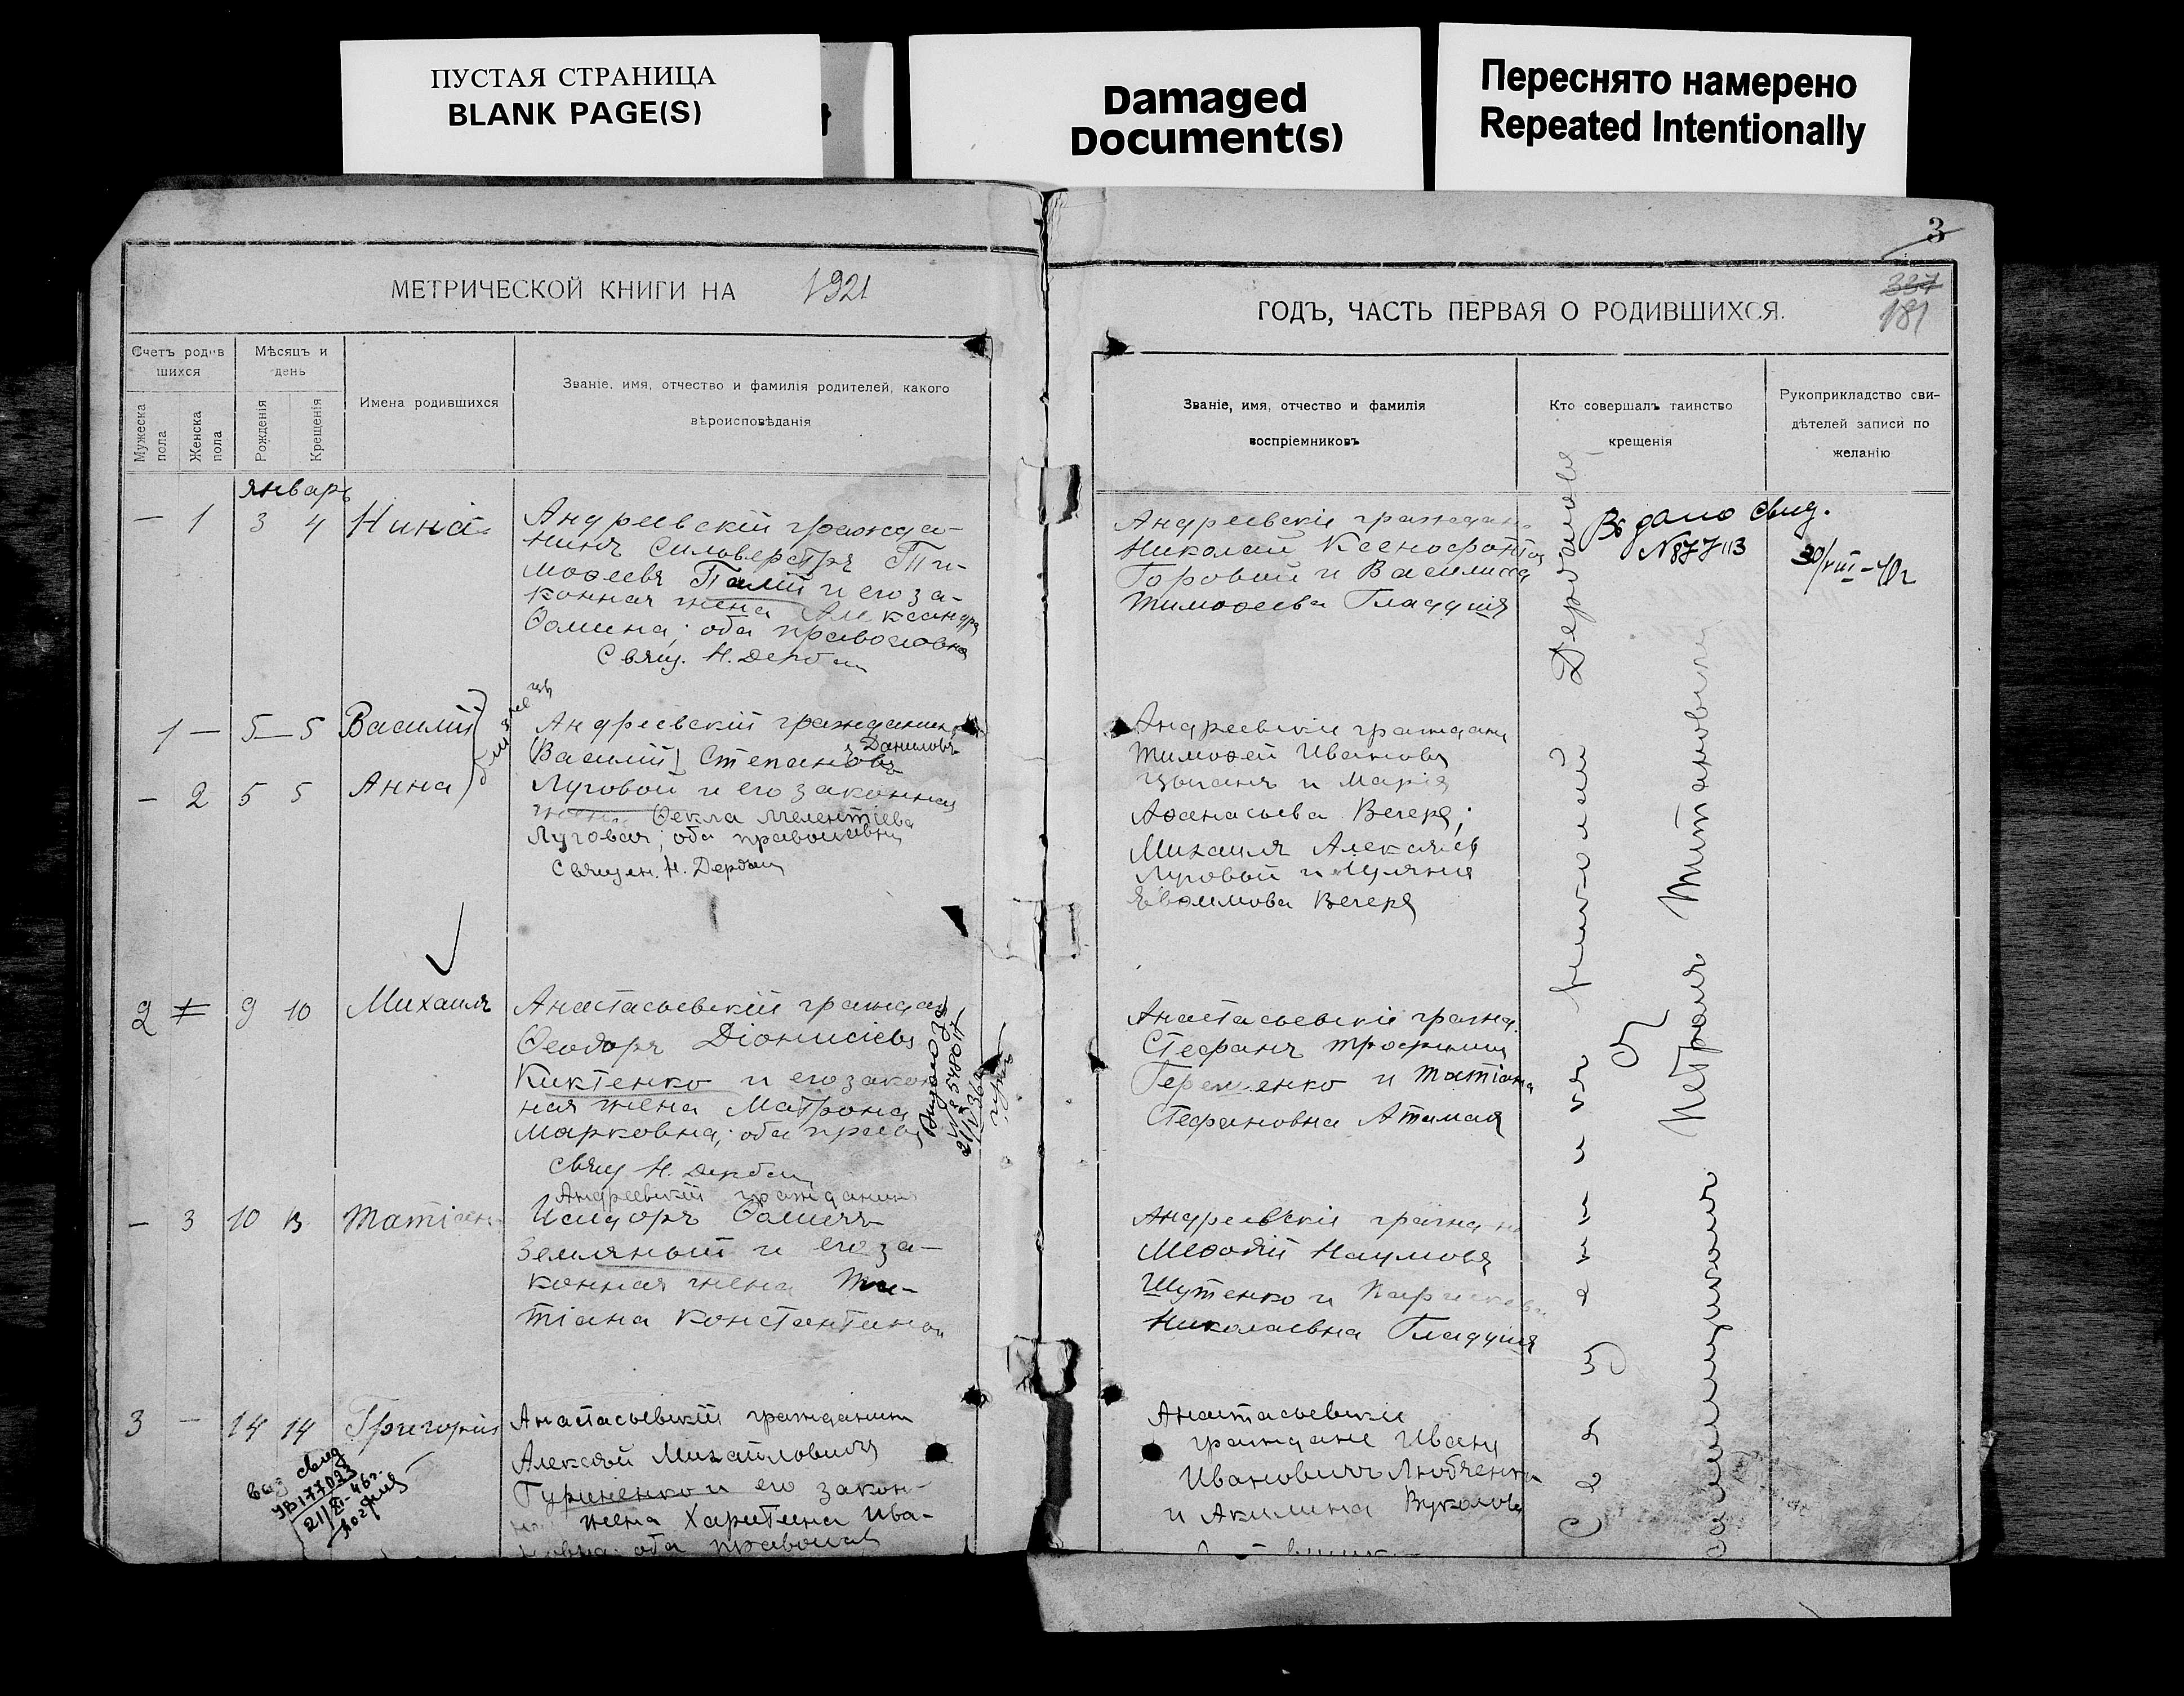 ПУСТАЯ СТРАНИЦА
BLANK PAGE(S)
Damaged
Document(s)
Переснято намерено
Repeated Intentionally
3
337
181
МЕТРИЧЕСКОЙ КНИГИ НА 1921
ГОДЪ, ЧАСТЬ ПЕРВАЯ О РОДИВШИХСЯ.
Счетъ родив
шихся
Мужеска
пола
Женска
пола
Мѣсяцъ и
день
Рожденія
Крещенія
Имена родившихся
Званіе, имя, отчество и фамилія родителей, какого
вѣроисповѣданія
Званіе, имя, отчество и фамилія
воспріемниковъ
Кто совершалъ таинство
крещенія
Рукоприкладство сви-
дѣтелей записи по
желанію
январь
— 1 3 4 Нина
Андреевскій гражда-
нинъ Сильверстръ Ти-
моѳеевъ Палій и его за-
конная жена Александра
Ѳомина; оба православны
Свящ. Н. Дербан
Андреевскіе граждане
Николай Ксенофонтов
Горовой и Василиса
Тимоѳеева Гладущя
Выдано свид.
N 877113
30/VIII-40г
1 — 5 — 5 Василій
— 2 5 5 Анна
близнецы
Андреевскій гражданинъ
(Василій) Степановъ Даниловъ
Луговой и его законная
жена Ѳекла Мелентіева
Луговая; оба православны
Священ. Н. Дербан
Андреевскіе граждане
Тимоѳей Ивановъ
Цыганъ и Марія
Аѳанасьева Вечеря;
Михаилъ Алексѣев
Луговой и Іуліанія
Евѳимова Вечеря
2 9 10 Михаилъ
Анастасьевскій граждан
Ѳеодоръ Діонисіевъ
Киктенко и его закон
ная жена Матрона
Марковна; оба прав
свящ Н. Дербан
Выдано
№ 548017
21/V 36
Анастасьевскіе гражд.
Стефанъ Трофимов
Герещенко и Татіана
Стефановна Атамая
— 3 10 13 Татіана
Андреевскій гражданинъ
Исидоръ Ѳомичъ
Земляный и его за-
конная жена Та-
тіана Константинов
Андреевскіе граждане
Меѳодій Наумовъ
Шутенко и
Николаевна Гладущя
3 — 14 14 Григорій
Анастасьевскій гражданинъ
Алексѣй Михайловичъ
Гуриненко и его закон-
жена Харитина Ива-
новна; оба православ
выд свид
177023
21/XI-46г.
Анастасьевскіе
граждане Иванъ
Ивановичъ Любченко
и Акилина Вуколова
Священникъ Николай Дербановъ
съ псаломщикомъ Петромъ Титановымъ